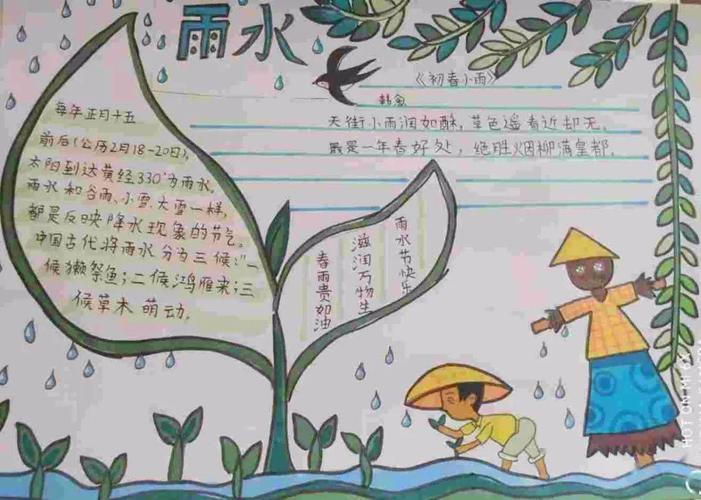 雨水
《初春小雨》
韩愈
天街小雨润如酥,草色遥看近却无。
最是一年春好处,绝胜烟柳满皇都。
每年正月十五
前后(公历2月18-20日),
太阳到达黄经330°为雨水。
雨水和谷雨、小雪、大雪一样,
都是反映降水现象的节气。
中国古代将雨水分为三候:“一
候獭祭鱼;二候鸿雁来;三
候草木萌动。
雨水节快乐
滋润万物生
春雨贵如油
SHOT ON MI 6X